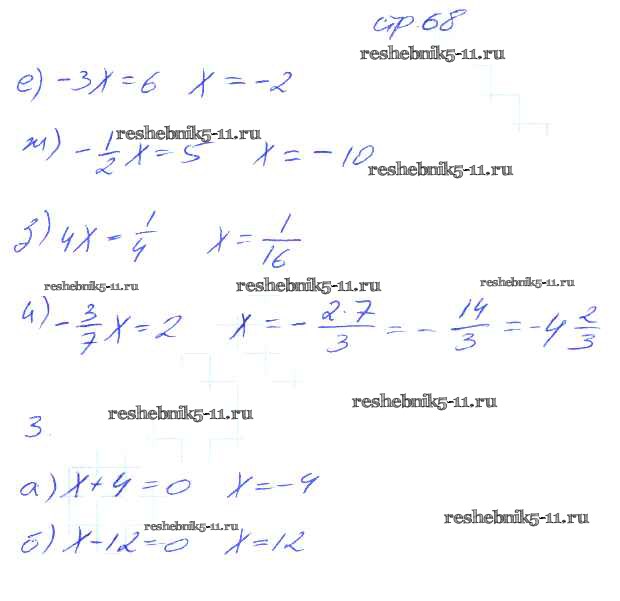 стр. 68
reshebnik5-11.ru
е) -3x = 6 x = -2
reshebnik5-11.ru
ж) -1/2 x = 5 x = -10
reshebnik5-11.ru
з) 4x = 1/4 x = 1/16
reshebnik5-11.ru reshebnik5-11.ru reshebnik5-11.ru
и) -3/7 x = 2 x = - 2·7/3 = - 14/3 = -4 2/3
reshebnik5-11.ru reshebnik5-11.ru
3.
а) x + 4 = 0 x = -4
reshebnik5-11.ru reshebnik5-11.ru
б) x - 12 = 0 x = 12